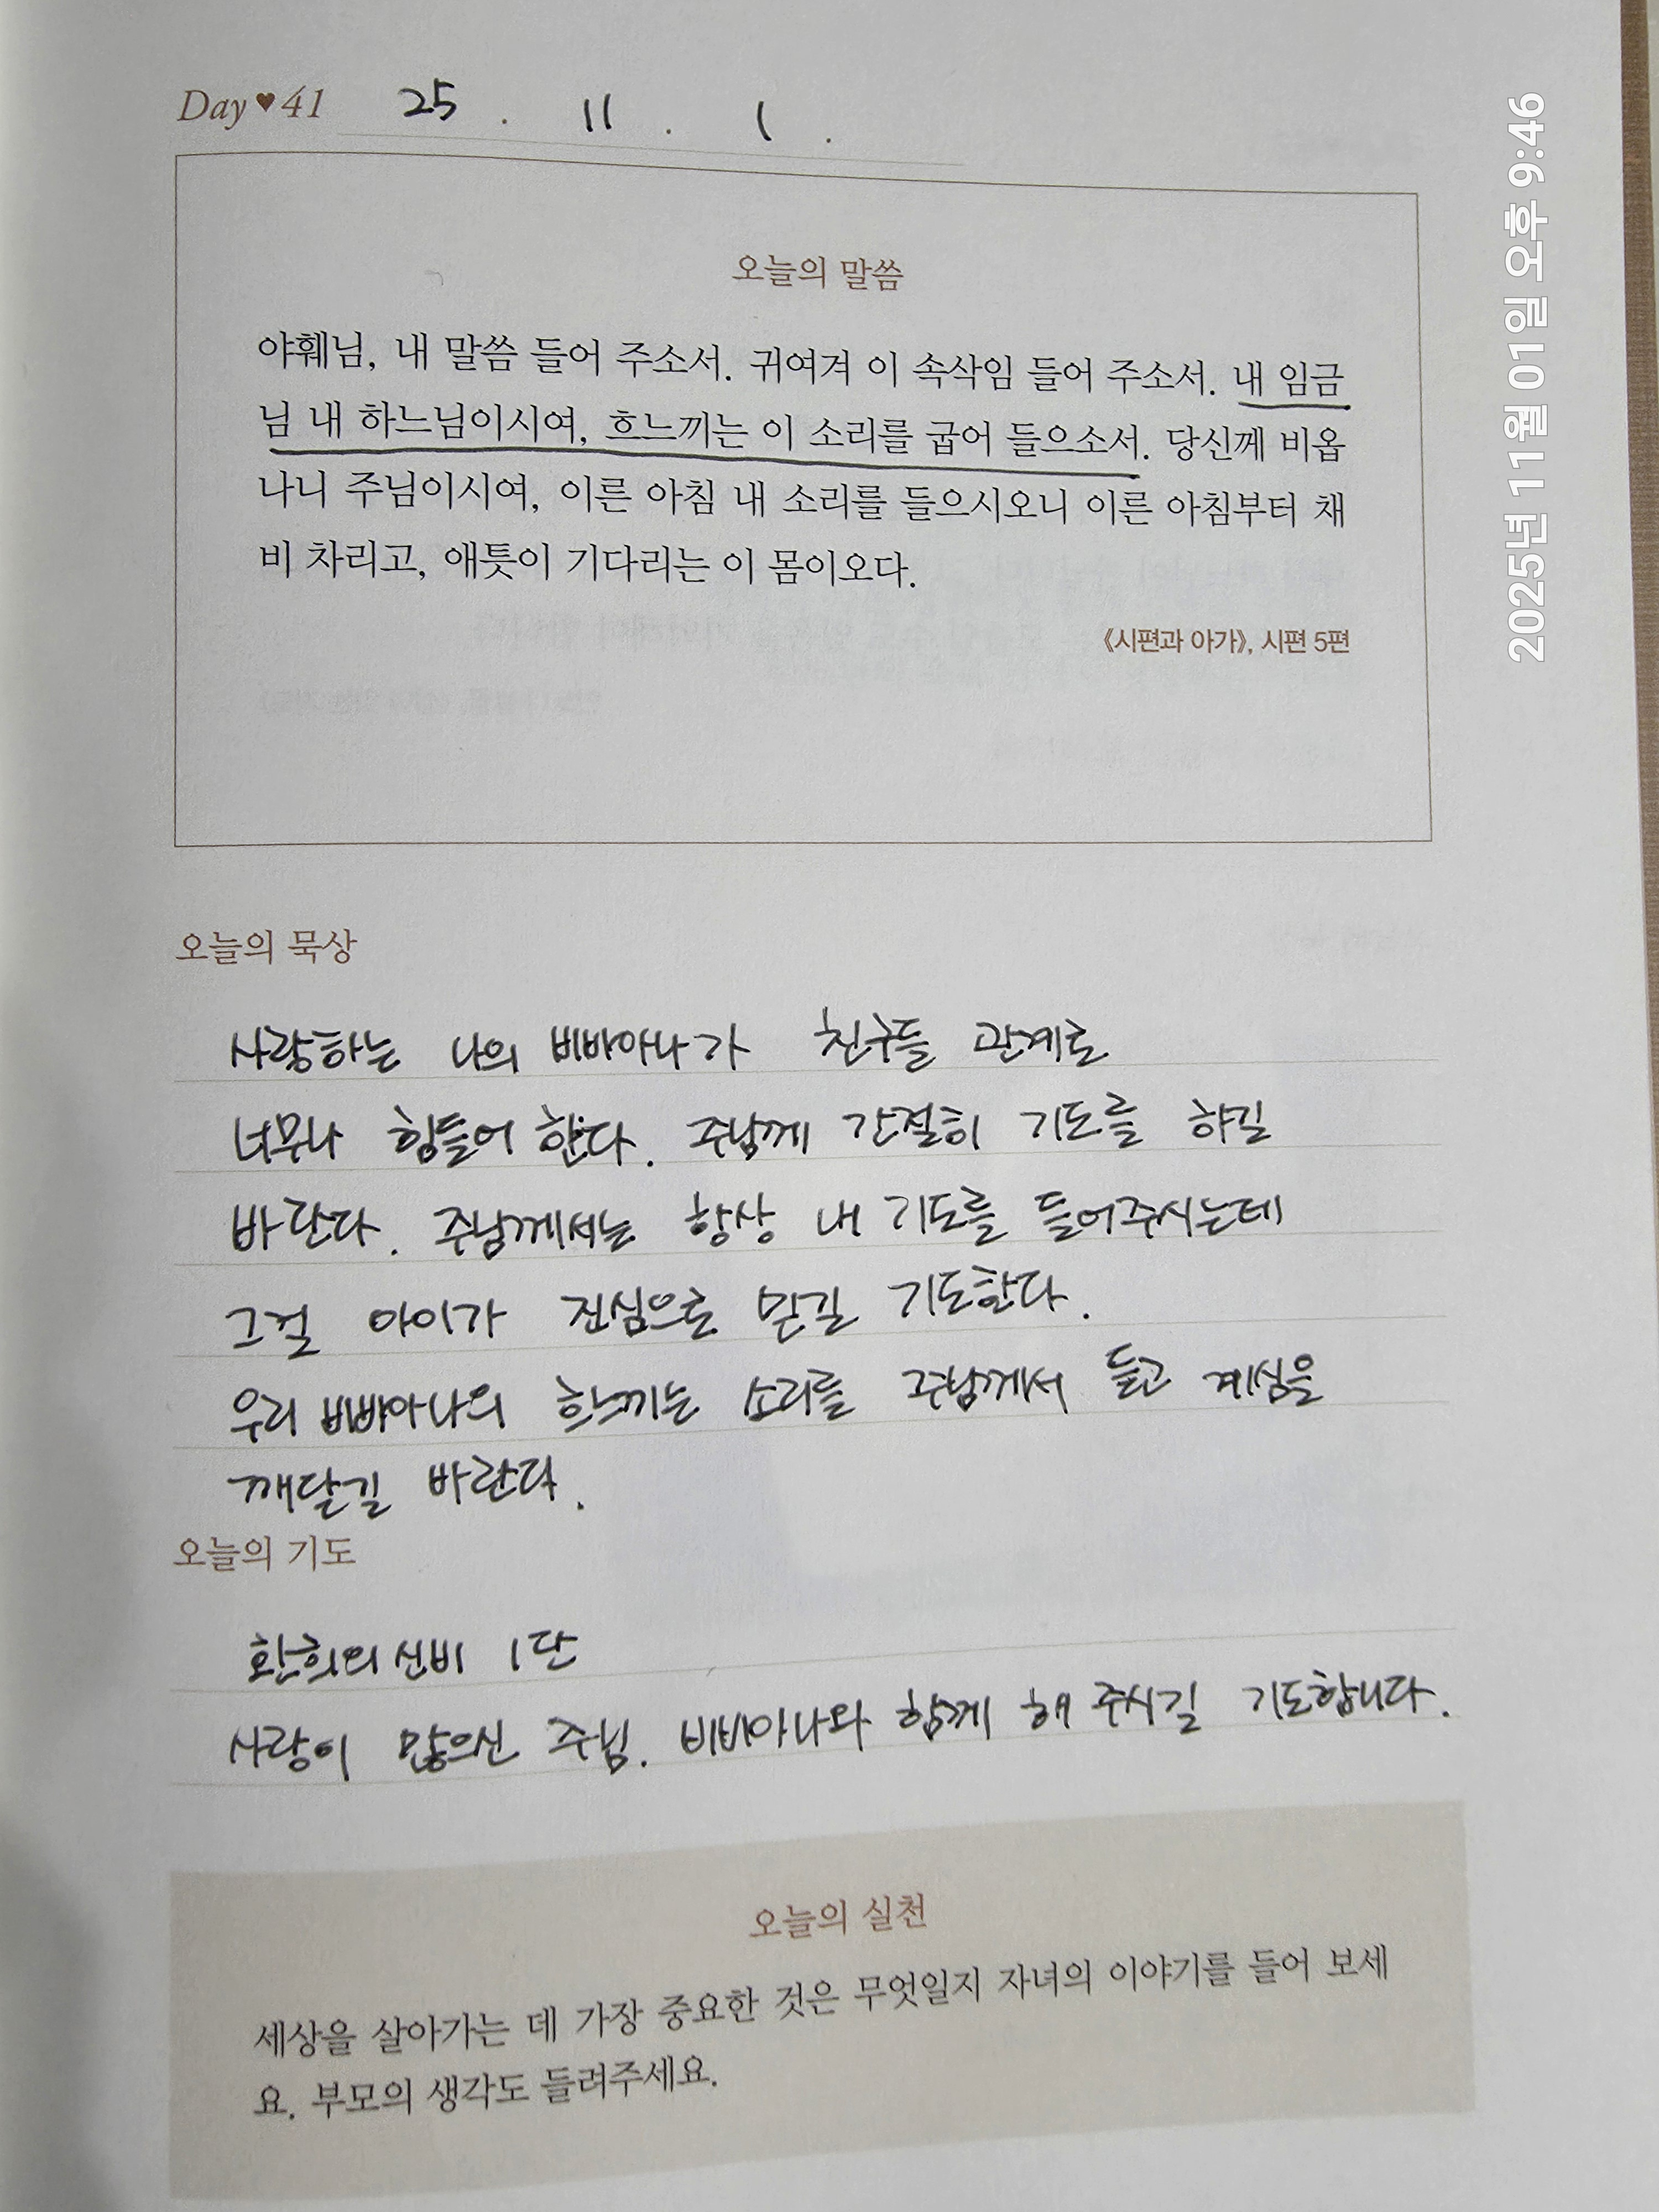 Day ♥ 41 25 . 11 . 1 .
오늘의 말씀
야훼님, 내 말씀 들어 주소서. 귀여겨 이 속삭임 들어 주소서. 내 임금
님 내 하느님이시여, 흐느끼는 이 소리를 굽어 들으소서. 당신께 비옵
나니 주님이시여, 이른 아침 내 소리를 들으시오니 이른 아침부터 채
비 차리고, 애틋이 기다리는 이 몸이오다.
《시편과 아가》, 시편 5편
오늘의 묵상
사랑하는 나의 비비아나가 친구들 관계로
너무나 힘들어 한다. 주님께 간절히 기도를 하길
바란다. 주님께서는 항상 내 기도를 들어주시는데
그걸 아이가 진심으로 믿길 기도한다.
우리 비비아나의 흐느끼는 소리를 주님께서 듣고 계심을
깨달길 바란다.
오늘의 기도
환희의 신비 1단
사랑이 많으신 주님. 비비아나와 함께 해 주시길 기도합니다.
오늘의 실천
세상을 살아가는 데 가장 중요한 것은 무엇일지 자녀의 이야기를 들어 보세
요. 부모의 생각도 들려주세요.
2025년 11월 01일 오후 9:46